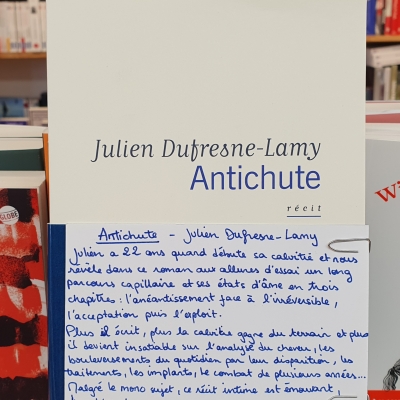 Julien Dufresne-Lamy
Antichute
récit
Antichute - Julien Dufresne-Lamy
Julien a 22 ans quand débute sa calvitie et nous
révèle dans ce roman aux allures d'essai un long
parcours capillaire et ses états d'âme en trois
chapitres : l'anéantissement face à l'irréversible,
l'acceptation puis l'exploit.
Plus il écrit, plus la calvitie gagne du terrain et plus
il devient insatiable sur l'analyse du cheveu, les
bouleversements du quotidien par leur disparition, les
traitements, les implants, le combat de plusieurs années...
Malgré le mono sujet, ce récit intime est émouvant,
GLOBE
Wi